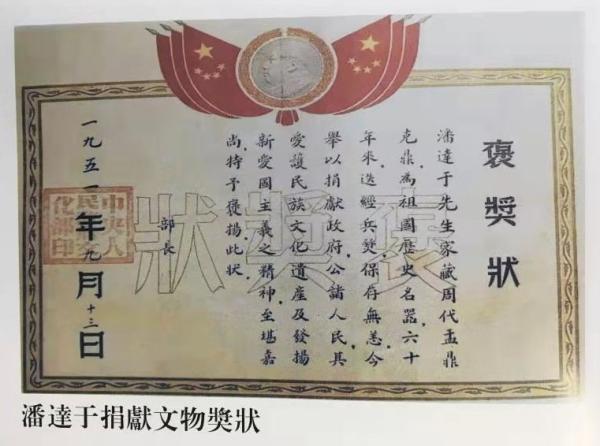 褒獎狀
潘達于先生家藏周代盂鼎
克鼎,為祖國歷史名器,六十
年來,迭經兵燹,保存無恙,今
舉以捐獻政府,公諸人民,其
愛護民族文化遺產及發揚
新愛國主義之精神至堪嘉
尚,特予褒揚此狀.
部長
一九五一年九月十三日
褒獎狀
化部印
潘達于捐獻文物獎狀